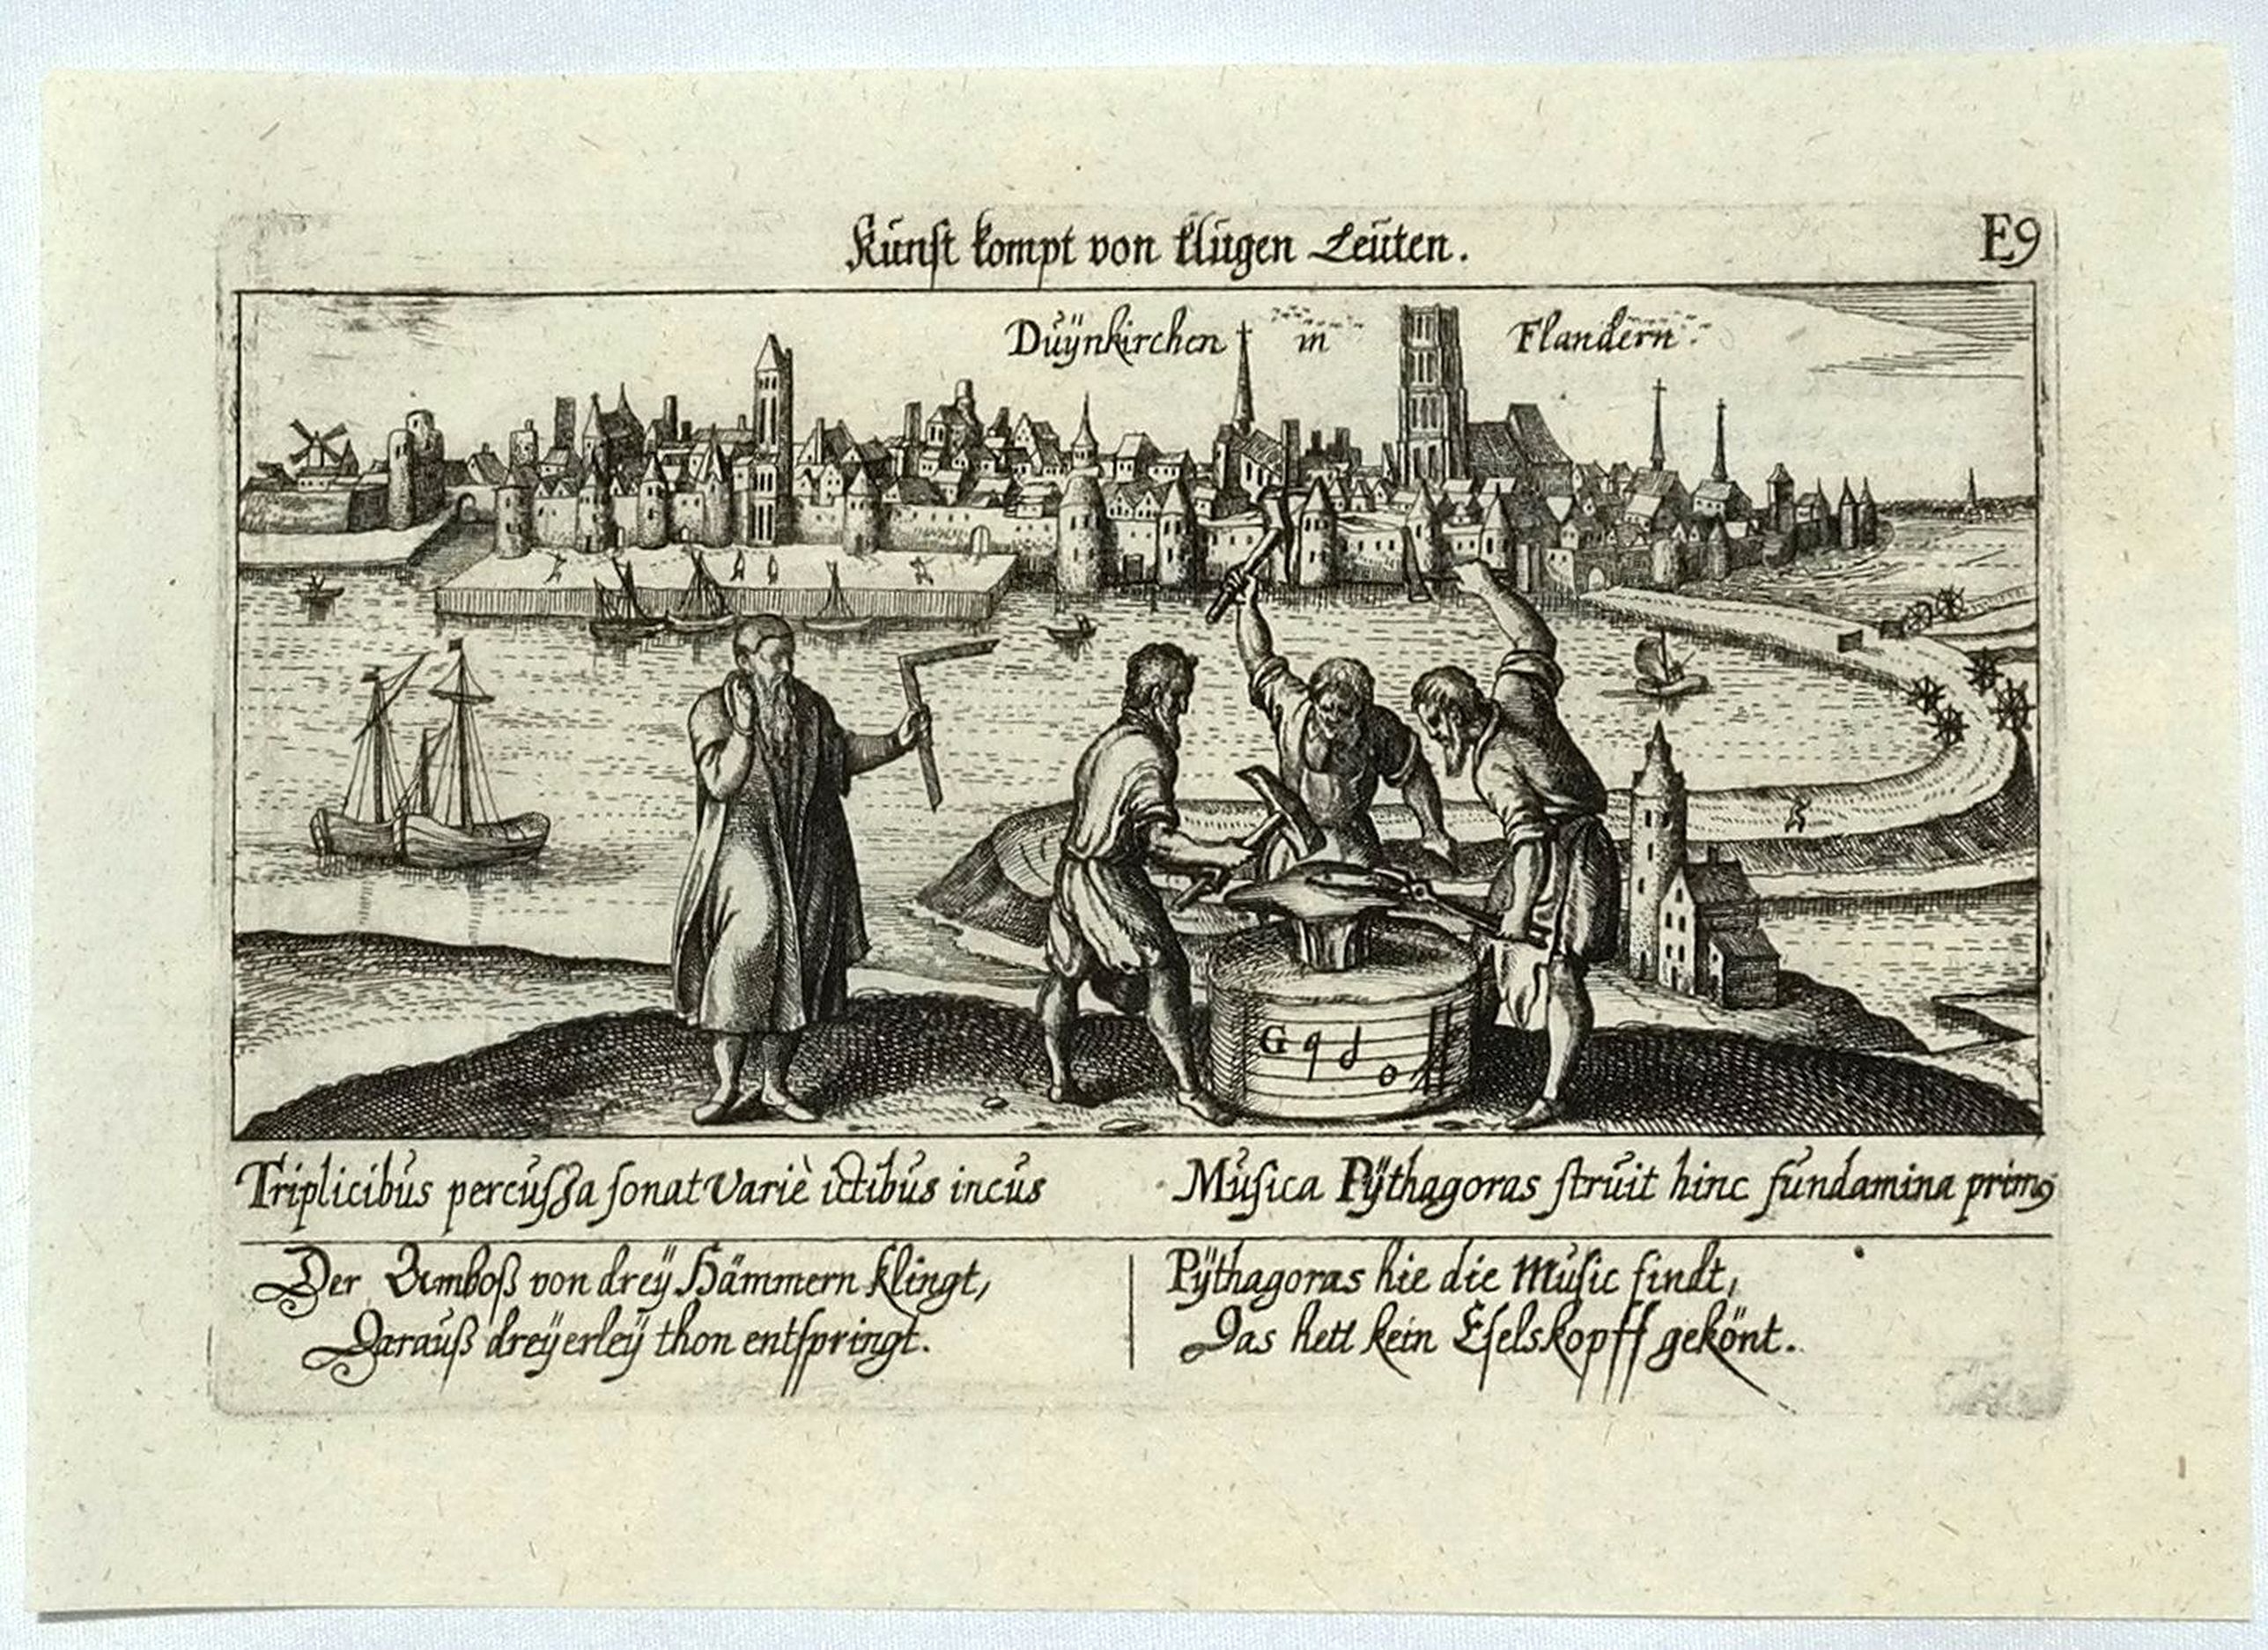 Kunſt kompt von klugen Leuten.
E9
Duÿnkirchen in Flandern.
G
Triplicibus percuſſa ſonat variè ictibus incus
Muſica Pÿthagoras ſtruit hinc fundamina primꝰ
Der Amboß von dreÿ Hämmern klingt,
Darauß dreÿerleÿ thon entſpringt.
Pÿthagoras hie die Muſic findt,
Das hett kein Eſelskopff gekönt.